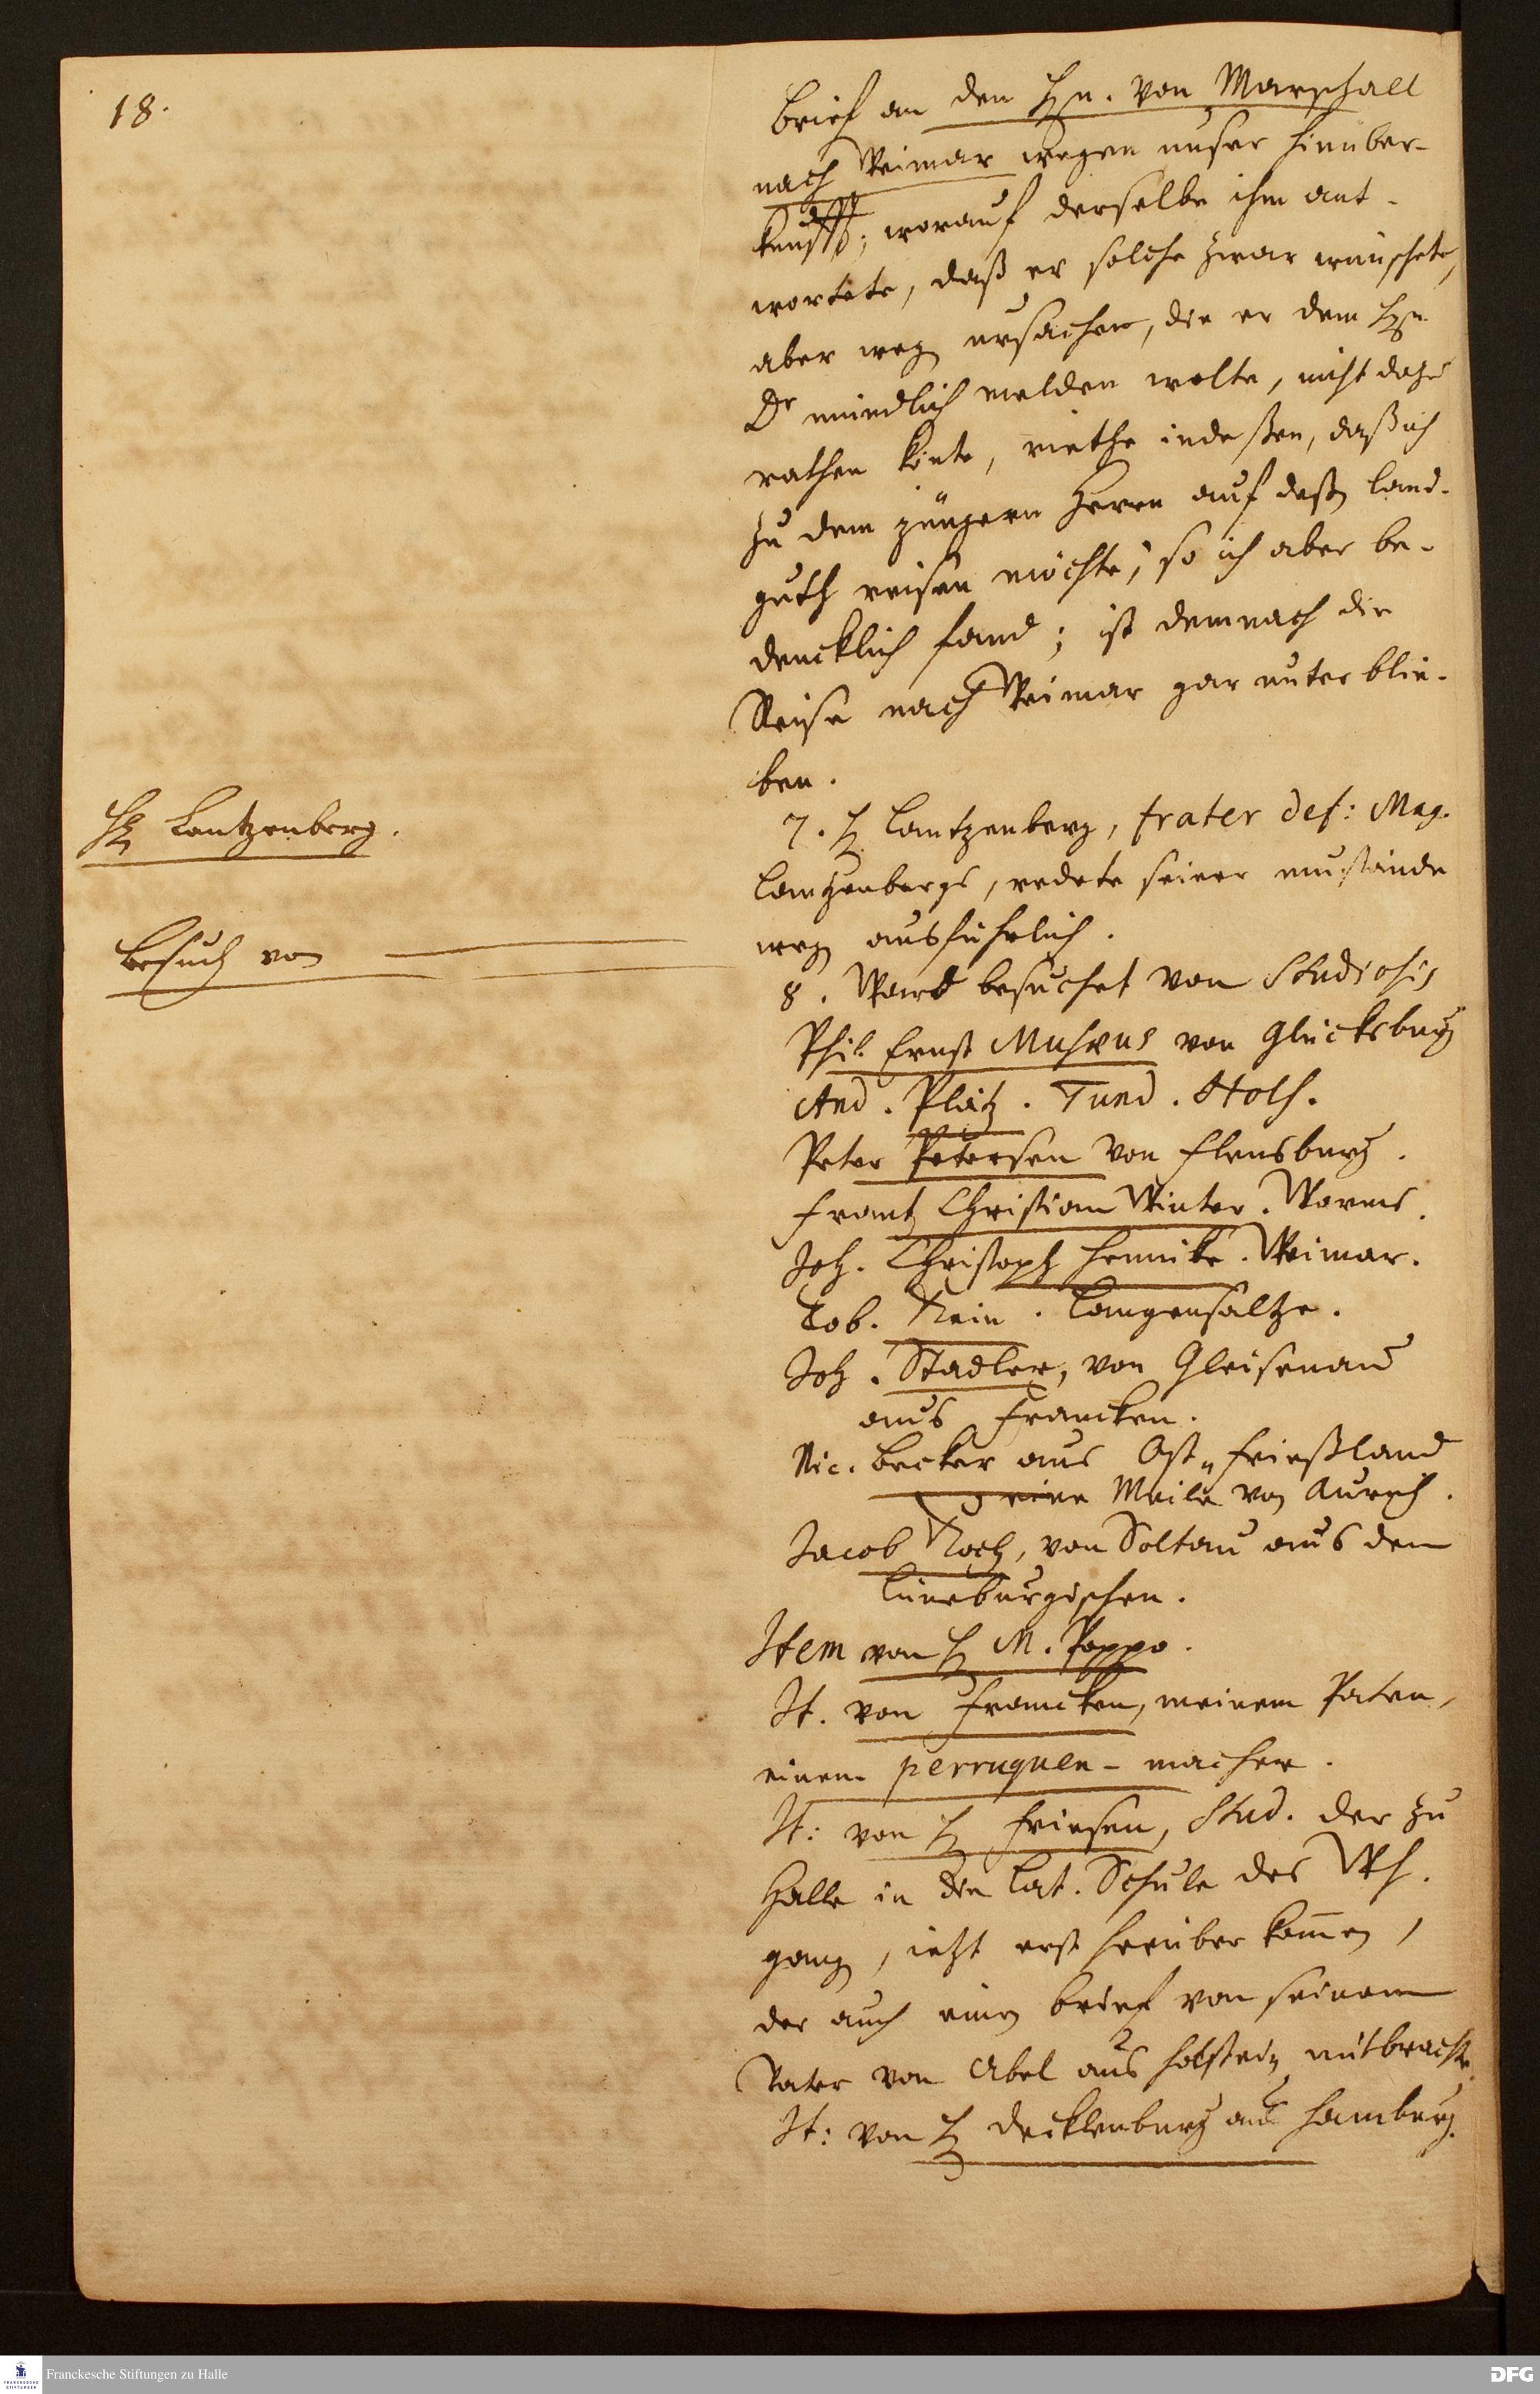 18.
brief an den Hn. von Marschall
nach Weimar wegen unser hinüber-
kunfft; worauf derselbe ihm ant-
wortete, daß er solche zwar wünschete,
aber weg ursachen, die er dem Hn
Dr mündlich melden wolte, nicht dazu
rathen könte, riethe indeßen, daß ich
zu dem jüngern Herrn auf deßen land-
guth reisen möchte, so ich aber be-
dencklich fand; ist demnach die
Reise nach Weimar gar unterblie-
ben.
H Lantzenberg.
7. H Lantzenberg, frater def: Mag.
Lantzenbergs, redete seiner umstände
weg ausführlich.
Besuch von
8. Ward besuchet von Studiosis
Phil. Ernst Muhrus von Glücksburg
And. Platz. Tund. Hols.
Peter Petersen von Flensburg.
Frantz Christian Winter. Worms.
Joh. Christoph Hennike. Weimar.
Tob. Rein. Langensaltze.
Joh. Stadler, von Gleisenau
aus Francken.
Nic. Becker aus Ost-Frießland
eine Meile von Aurich.
Jacob Koch, von Soltau aus dem
Lüneburgischen.
Item von H M. Poppo.
It. von Francken, meinem Paten,
einem perruquen-macher.
It: von H Friesen, Stud. der zu
Halle in die Lat. Schule des Wh.
gang, ietzt erst herüber kommen,
der auch einen brief von seinem
Vater von Abel aus Holstein mitbrachte.
It: von H Decklenburg aus Hamburg.
Franckesche Stiftungen zu Halle
FRANCKESCHE STIFTUNGEN
DFG